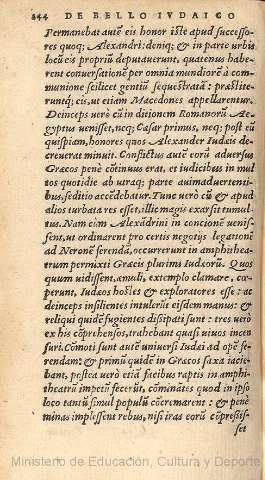 244 DE BELLO IVDAICO
Permanebat autē eis honor iste apud successo-
res quoq; Alexandri: deniq; & in parte urbis
locū eis propriū deputauerunt, quatenus habe-
rent conuersationē per omnia mundiorē à com-
munione scilicet gentiū sequestratā: præstite-
runtq; eis, ut etiam Macedones appellarentur.
Deinceps verò cū in ditionem Romanorū Ae-
gyptus venisset, neq; Cæsar primus, neq; post eū
quispiam, honores quos Alexander Iudæis de-
creuerat minuit. Conflictus autē eorū aduersus
Græcos penè cōtinuus erat, et iudicibus in mul-
tos quotidie ab utraq; parte animaduertenti-
bus, seditio accēdebatur. Tunc vero cū & apud
alios turbata res esset, illic magis exarsit tumul-
tus. Nam cùm Alexādrini in concionē venis-
sent, ut ordinarent pro certis negotijs legationē
ad Neronē ferendā, occurrerunt in amphithea-
trum permixti Græcis plurimi Iudæorū. Quos
quum uidissent, æmuli, extemplo clamare, cœ-
perunt, Iudæos hostes & exploratores esse: ac
deinceps insilientes intulerūt eisdem manus: &
reliqui quidē fugientes dissipati sunt: tres verò
ex his cōprehensos, trahebant quasi uiuos incen
suri. Cōmoti sunt autē uniuersi Iudæi ad opē fe-
rendam: & primū quidē in Græcos saxa iacie-
bant, postea verò etiā facibus raptis in amphi-
theatrū impetū fecerūt, cōminātes quod in ipso
loco tantū simul populū cōcremarent: & penè
minas implessent rebus, nisi iras eorū cōpressis-
set
Ministerio de Educación, Cultura y Deporte